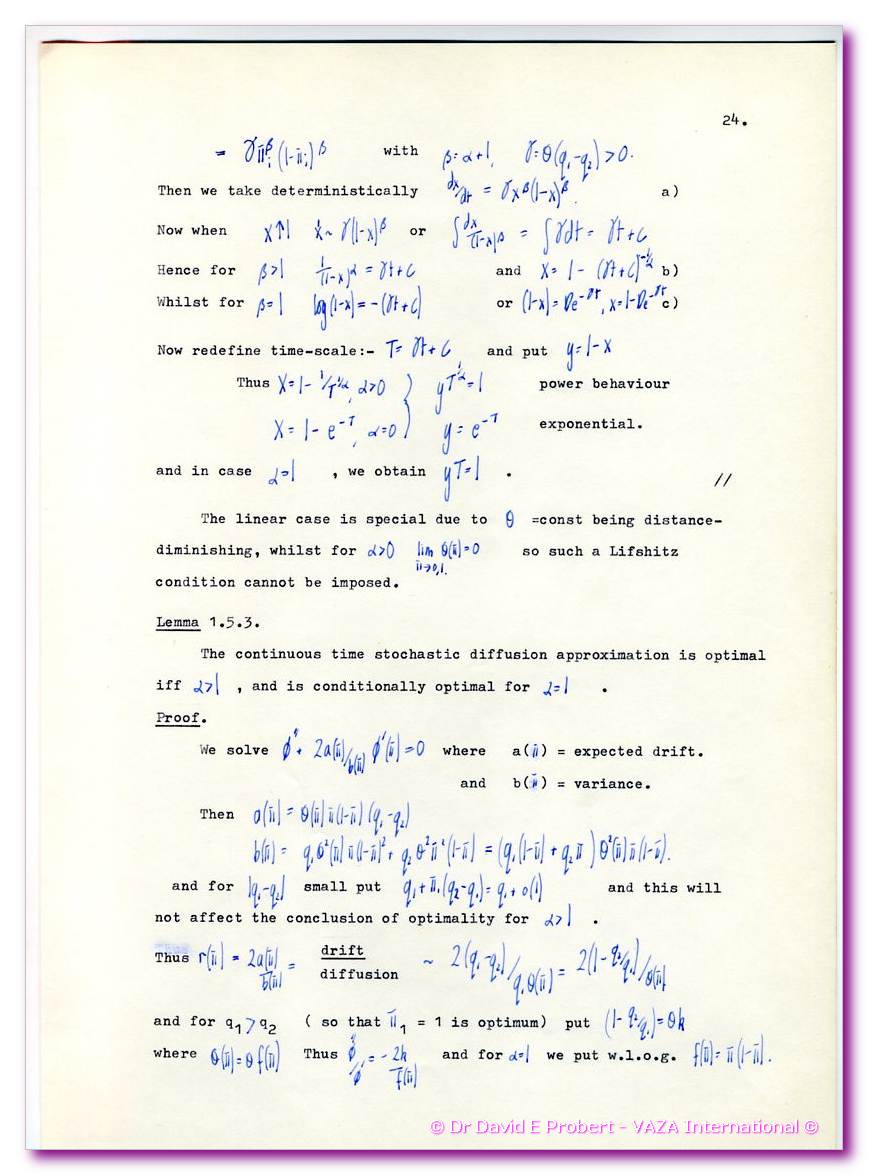 24.
= γπ₁^β (1-π₁)^β with β = α+1, γ = θ(q₁-q₂) > 0.
Then we take deterministically dx/dt = γx^β(1-x)^β. a)
Now when x↑1 ẋ ~ γ(1-x)^β or ∫ dx/(1-x)^β = ∫γdt = γt+c
Hence for β>1 1/(1-x)^α = γt+c and x = 1 - (γt+c)^-1/α b)
Whilst for β=1 log(1-x) = -(γt+c) or (1-x) = De^-γt, x=1-De^-γt c)
Now redefine time-scale:- T= γt+c and put y=1-x
Thus x=1- 1/T^1/α, α>0 } yT^1/α=1 power behaviour
x = 1 - e^-T, α=0 } y = e^-T exponential.
and in case α=1 , we obtain yT=1 . //
The linear case is special due to θ =const being distance-
diminishing, whilst for α>0 lim θ(π)=0 so such a Lifshitz
π→0,1.
condition cannot be imposed.
Lemma 1.5.3.
The continuous time stochastic diffusion approximation is optimal
iff α>1 , and is conditionally optimal for α=1 .
Proof.
We solve φ" + 2a(π)/b(π) φ'(π) = 0 where a(π) = expected drift.
and b(π) = variance.
Then a(π) = θ(π)π(1-π)(q₁-q₂)
b(π) = q₁θ²(π)π(1-π)² + q₂θ²π²(1-π) = (q₁(1-π) + q₂π)θ²(π)π(1-π).
and for |q₁-q₂| small put q₁+π₁(q₂-q₁) = q₁+o(1) and this will
not affect the conclusion of optimality for α>1 .
Thus r(π) = 2a(π)/b(π) = drift/diffusion ~ 2(q₁-q₂)/q₁θ(π) = 2(1-q₂/q₁)/θ(π)
and for q₁>q₂ ( so that π₁ = 1 is optimum) put (1-q₂/q₁)=θk
where θ(π)=θf(π) Thus φ"/φ' = -2k/f(π) and for α=1 we put w.l.o.g. f(π)= π(1-π).
© Dr David E Probert - VAZA International ©